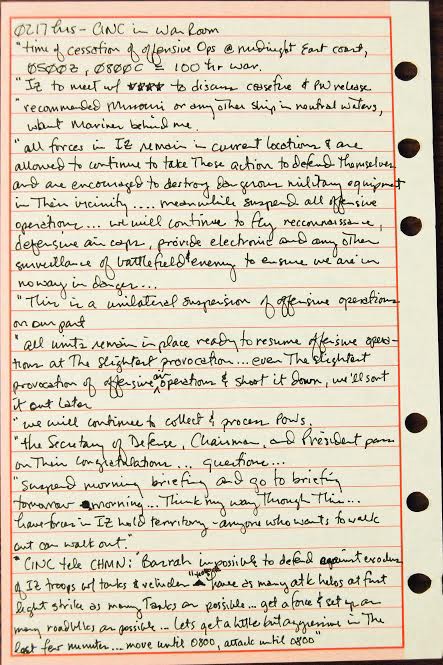 0217 hrs - CINC in War Room
"time of cessation of offensive Ops @ midnight East coast,
0500Z, 0800C = 100 hr war.
"IZ to meet w/ to discuss ceasefire & PW release
"recommended Missouri or any other ship in neutral waters,
want Mariner behind me.
"all forces in IZ remain in current locations & are
allowed to continue to take those action to defend themselves
and are encouraged to destroy dangerous military equipment
in their vicinity .... meanwhile suspend all offensive
operations ... we will continue to fly reconnaissance,
defensive air caps, provide electronic and any other
surveillance of battlefield & enemy to ensure we are in
no way in danger...
"This is a unilateral suspension of offensive operations
on our part
"all units remain in place ready to resume offensive opera-
tions at the slightest provocation ... even the slightest
provocation of offensive air operations & shoot it down, we'll sort
it out later
"we will continue to collect & process POWs,
"the Secretary of Defense, Chairman, and President pass
on their congratulations ... questions ...
"Suspend morning briefing and go to briefing
tomorrow morning ... Think my way through this ...
have forces in IZ hold territory - anyone who wants to walk
out can walk out."
"CINC tele CHMN: "Basrah impossible to defend against exodus
of IZ troops w/ tanks & vehicles " have as many atk helos at first
light strike as many Tanks as possible ... get a force & set up as
many roadblks as possible ... lets get a little but aggressive in the
last few minutes ... move until 0800, attack until 0800"